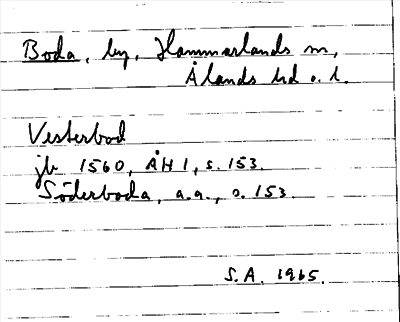 Boda, by, Hammarlands sn,
Ålands hd o. l.
Vesterbod
jb 1560, ÅH 1, s. 153.
Söderboda, a.a., s. 153.
S.A. 1965.